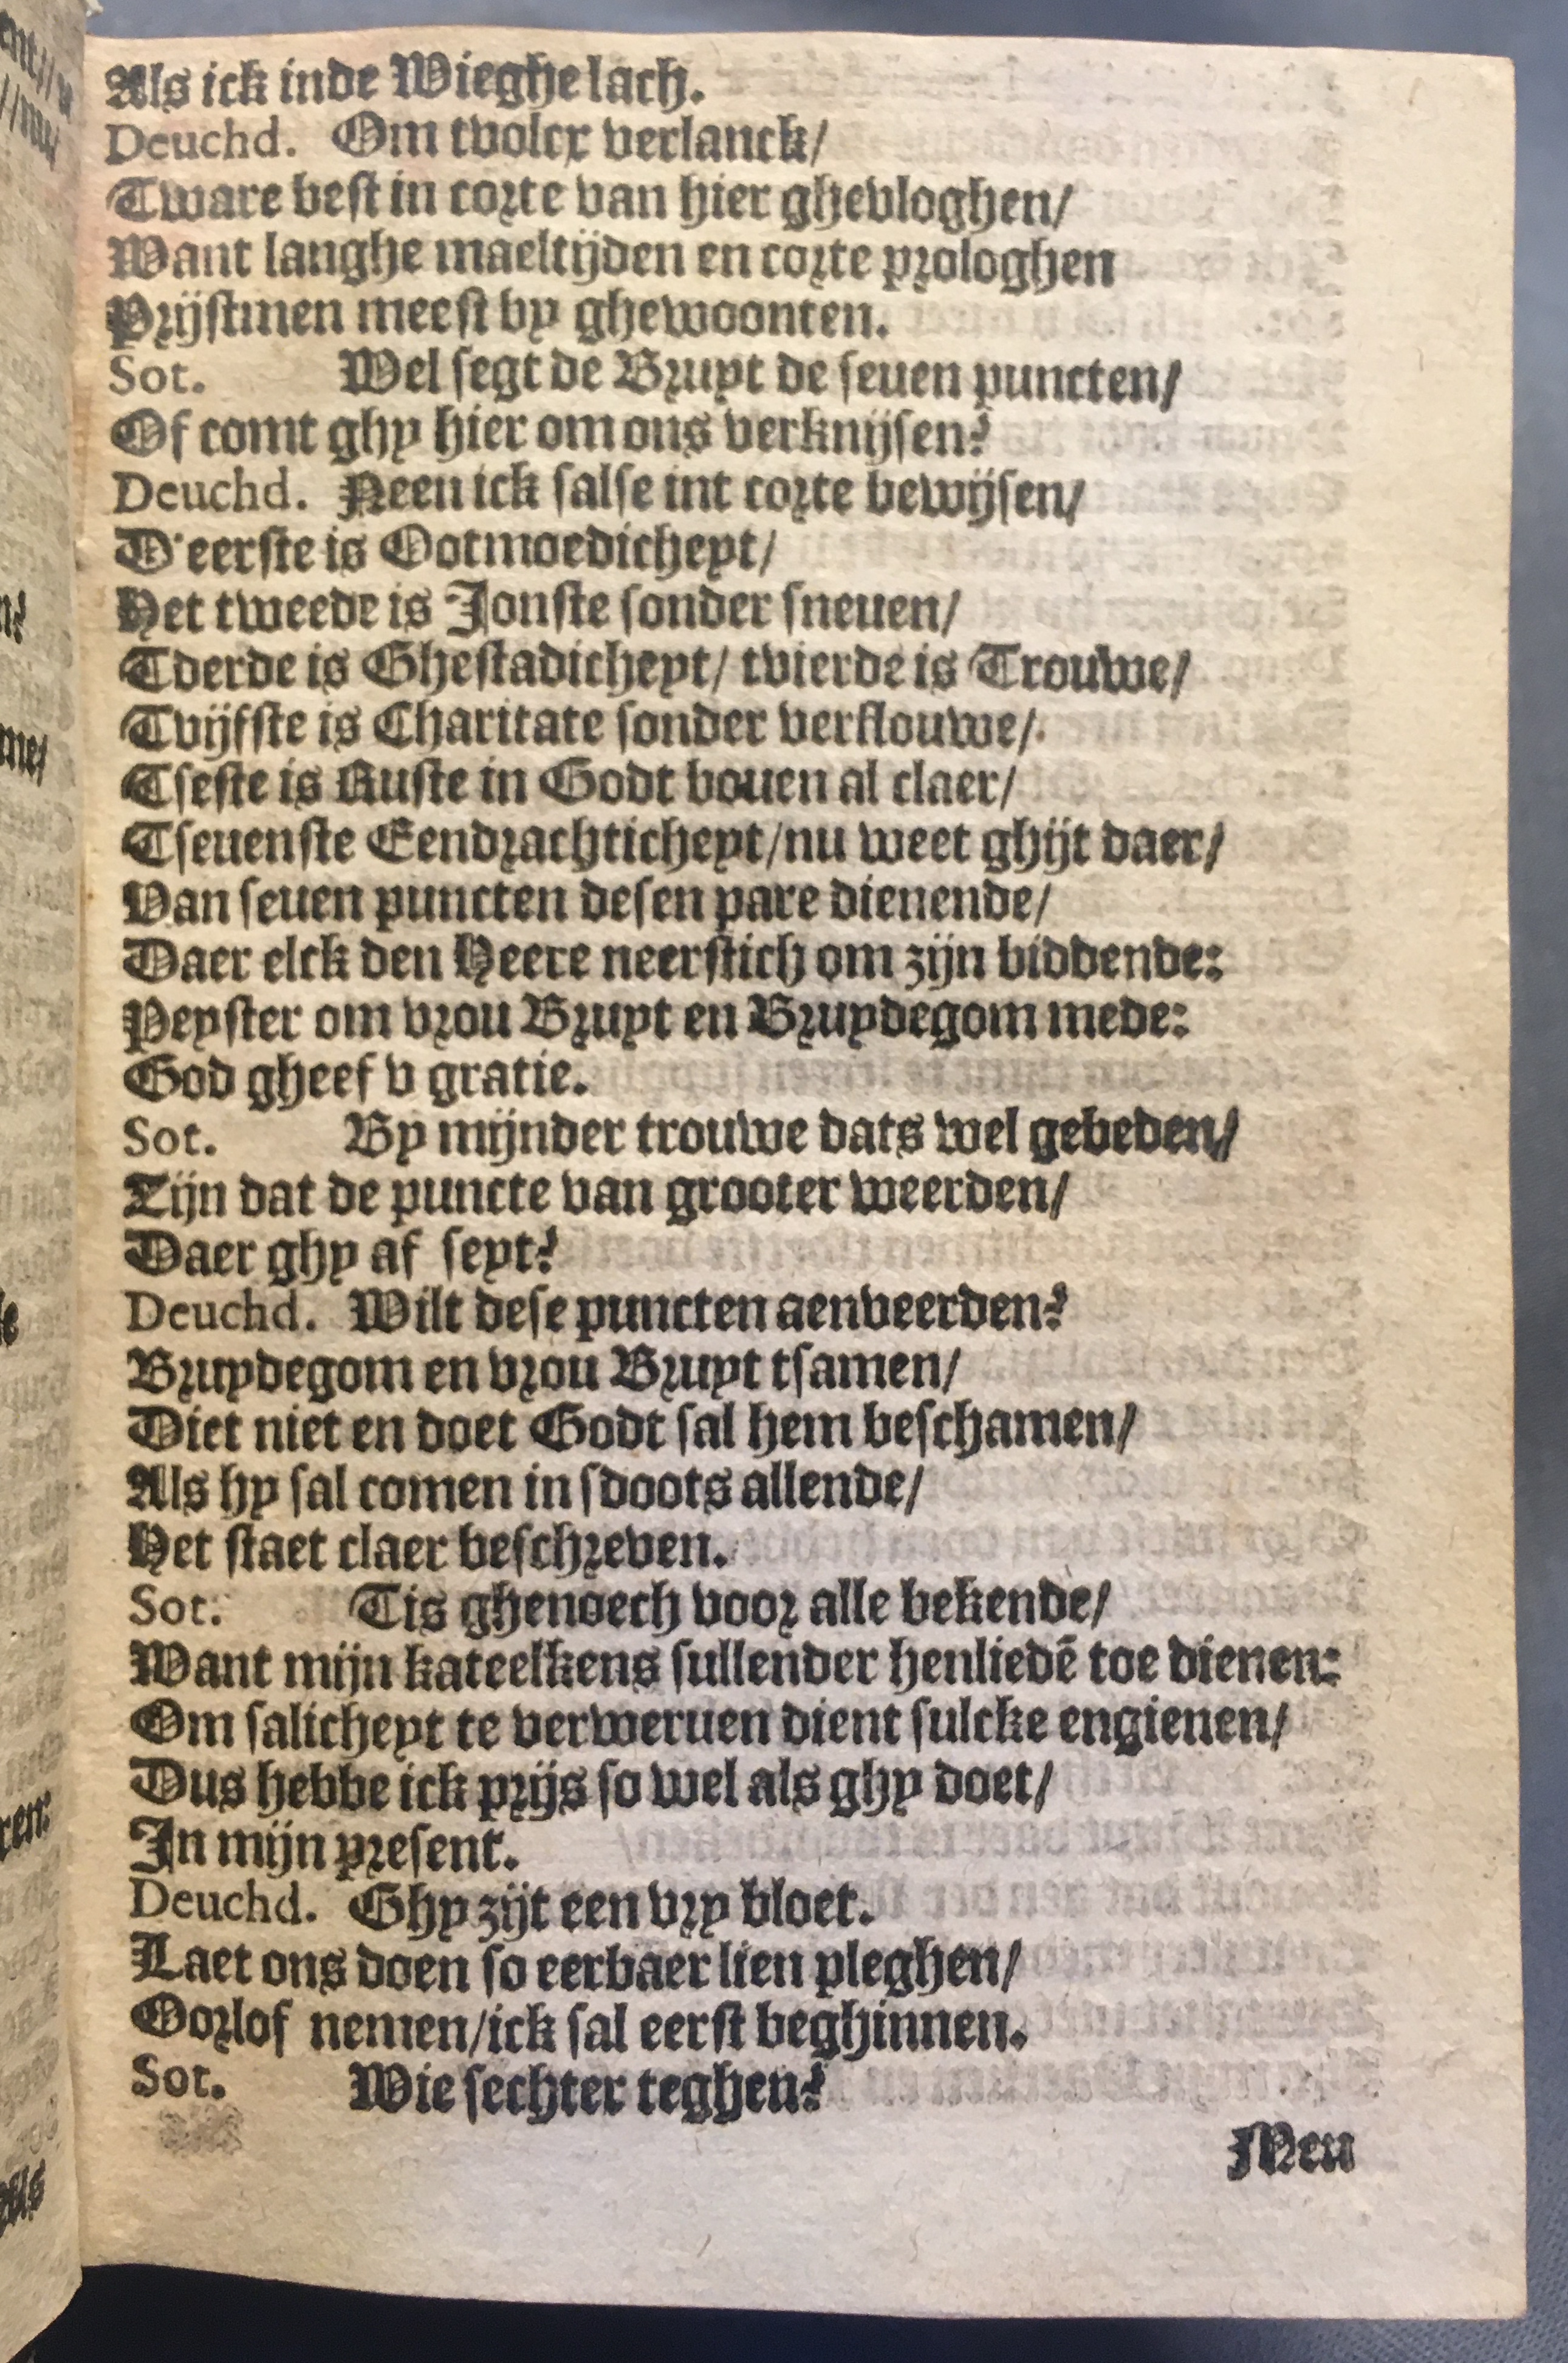 Als ick inde Wieghe lach.
Deuchd. Om tvolcx verlanck/
Tware best in corte van hier ghevloghen/
Want langhe maeltijden en corte prologhen
Prijstmen meest by ghewoonten.
Sot. Wel segt de Bruyt de seuen puncten/
Of comt ghy hier om ons verknijsen?
Deuchd. Neen ick salse int corte bewijsen/
D'eerste is Ootmoedicheyt/
Het tweede is Jonste sonder sneuen/
Tderde is Ghestadicheyt/ tvierde is Trouwe/
Tvijfste is Charitate sonder verflouwe/
Tseste is Ruste in Godt bouen al claer/
Tseuenste Eendrachticheyt/nu weet ghijt daer/
Van seuen puncten desen pare dienende/
Daer elck den Heere neerstich om zijn biddende:
Peyster om vrou Bruyt en Bruydegom mede:
God gheef v gratie.
Sot. By mijnder trouwe dats wel gebeden/
Tijn dat de puncte van grooter weerden/
Daer ghy af seyt?
Deuchd. Wilt dese puncten aenveerden?
Bruydegom en vrou Bruyt tsamen/
Diet niet en doet Godt sal hem beschamen/
Als hy sal comen in sdoots allende/
Het staet claer beschreven.
Sot. Tis ghenoech voor alle bekende/
Want mijn kateelkens sullender henliedē toe dienen:
Om salicheyt te verweruen dient sulcke engienen/
Dus hebbe ick prijs so wel als ghy doet/
In mijn present.
Deuchd. Ghy zijt een vry bloet.
Laet ons doen so eerbaer lien pleghen/
Oorlof nemen/ick sal eerst beghinnen.
Sot. Wie sechter teghen?
Men